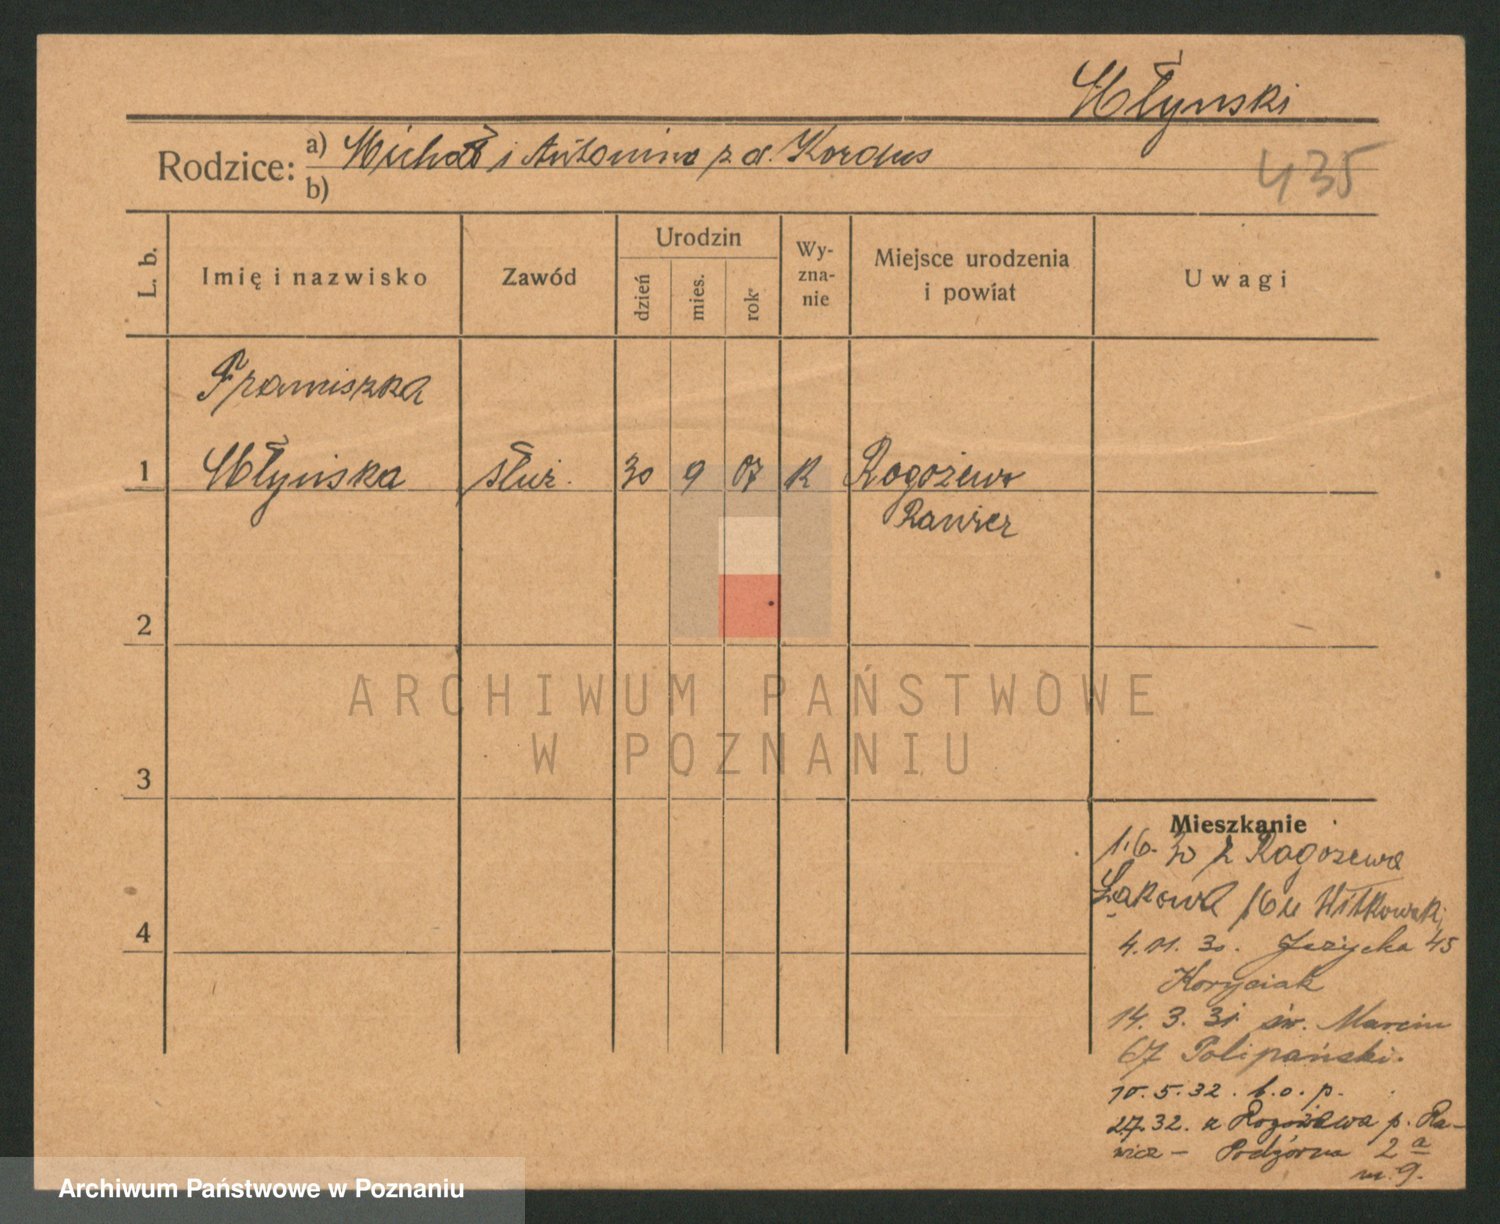 Młynski
Rodzice: a) Michał i Antonina z d. Kordus
b)
435
L. b.
Imię i nazwisko
Zawód
Urodzin
dzień
mies.
rok
Wy-
zna-
nie
Miejsce urodzenia
i powiat
Uwagi
Franciszka
1 Młyńska służ. 30 9 07 R Rogożewo
2
3
4
Mieszkanie
1.6. 30 z Rogożewa
Łąkowa 16 u Witkowski
4.11.30. Jeżycka 45
Koryciak
14.3.31 św. Marcin
67 Polipański.
10.5.32. b.o.p.
27.32. z Rogożewa p. Ra-
wicz - Podgórna 2a
m. 9.
ARCHIWUM PAŃSTWOWE
W POZNANIU
Archiwum Państwowe w Poznaniu